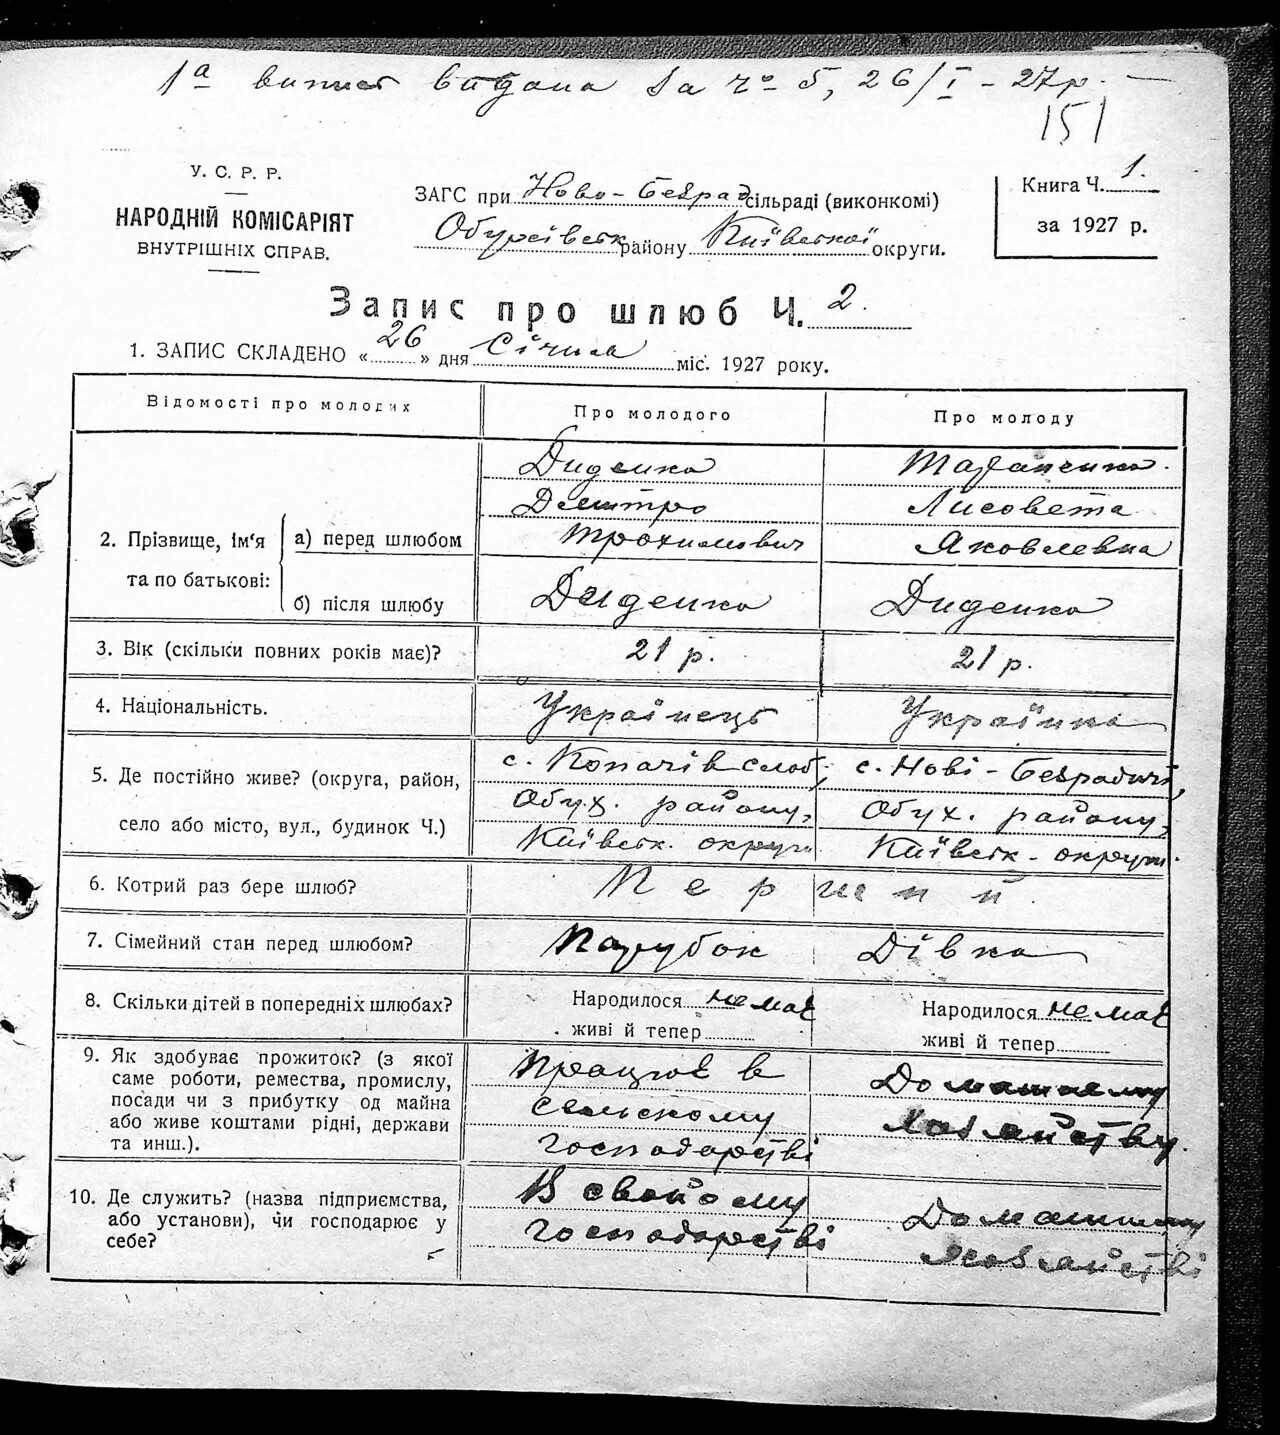 1а виписъ видана за ч° 5, 26/I - 27р. —
151
У. С. Р. Р.
НАРОДНІЙ КОМІСАРІЯТ
ВНУТРІШНІХ СПРАВ.
ЗАГС при Ново-Безрад сільраді (виконкомі)
Обухівськ району Київської округи.
Книга Ч. 1.
за 1927 р.
Запис про шлюб Ч. 2.
1. ЗАПИС СКЛАДЕНО «26» дня Січня міс. 1927 року.
Відомості про молодих Про молодого Про молоду
2. Прізвище, ім'я та по батькові:
а) перед шлюбом
Диденко
Дмитро
Трохимович
Тараненко.
Лисовета
Яковлевна
б) після шлюбу Диденко Диденко
3. Вік (скільки повних років має)? 21 р. 21 р.
4. Національність. Українець Українка
5. Де постійно живе? (округа, район,
село або місто, вул., будинок Ч.)
с. Копачів слоб,
Обух. району,
Київськ. округи
с. Нові-Безрадичі,
Обух. району,
Київськ. округи.
6. Котрий раз бере шлюб? Перший.
7. Сімейний стан перед шлюбом? Парубок Дівка
8. Скільки дітей в попередніх шлюбах? Народилося немає Народилося немає
живі й тепер живі й тепер
9. Як здобуває прожиток? (з якої
саме роботи, ремества, промислу,
посади чи з прибутку од майна
або живе коштами рідні, держави
та инш.).
Працює в
сельскому
господарстві
Домашнему
хозяйству.
10. Де служить? (назва підприємства,
або установи), чи господарює у
себе?
В свойому
господарстві
Домашньому
хозяйстві